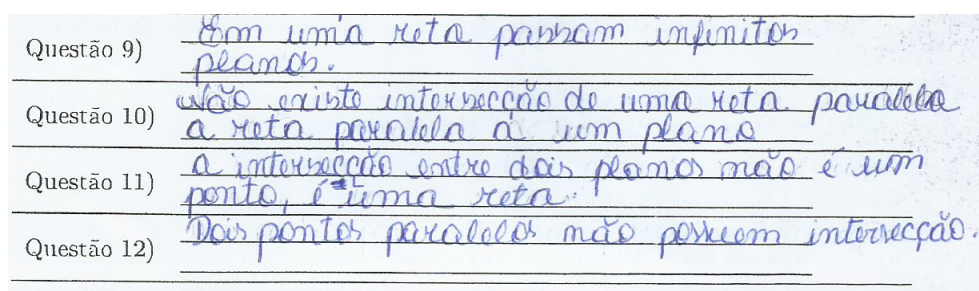 Questão 9) Em uma reta passam infinitos
planos.
Questão 10) Não existe intersecção de uma reta paralela
a reta paralela a um plano
Questão 11) a intersecção entre dois planos não é um
ponto, é uma reta.
Questão 12) Dois pontos paralelos não possuem intersecção.